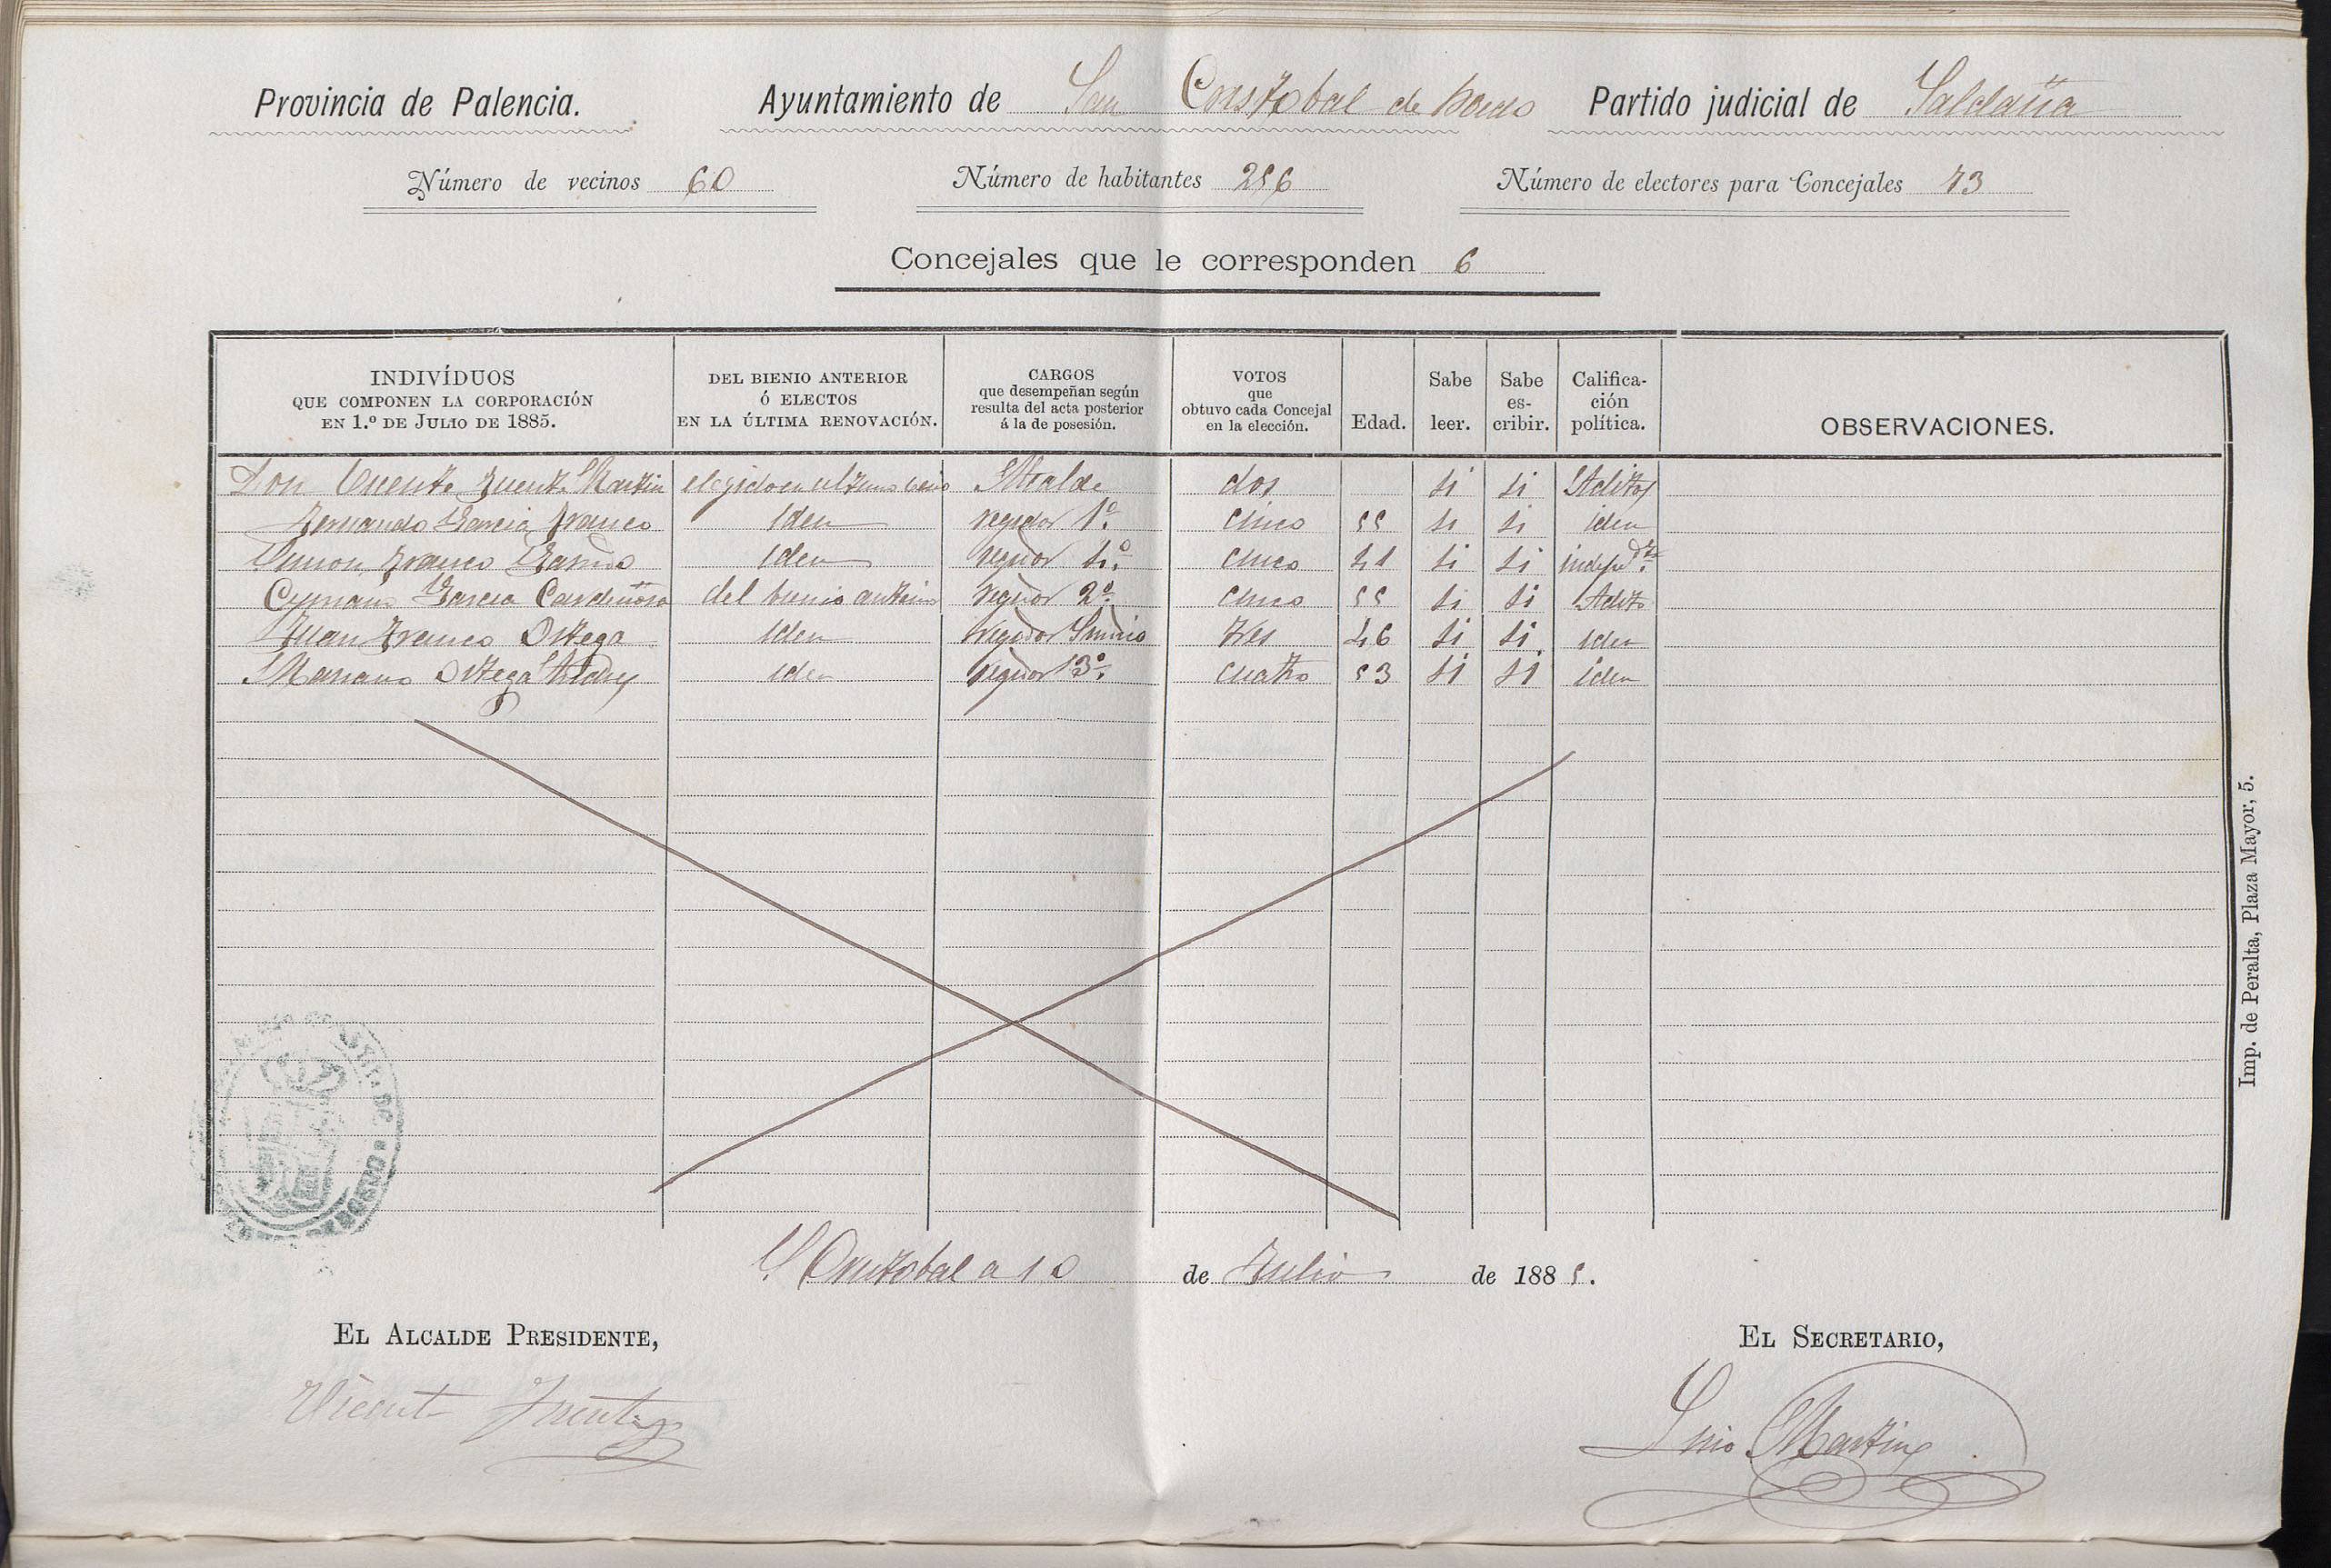 Provincia de Palencia. Ayuntamiento de San Cristobal de Boedo Partido judicial de Saldaña
Número de vecinos 60 Número de habitantes 256 Número de electores para Concejales 43
Concejales que le corresponden 6
INDIVÍDUOS QUE COMPONEN LA CORPORACIÓN EN 1.º DE JULIO DE 1885. DEL BIENIO ANTERIOR Ó ELECTOS EN LA ÚLTIMA RENOVACIÓN. CARGOS que desempeñan según resulta del acta posterior á la de posesión. VOTOS que obtuvo cada Concejal en la elección. Edad. Sabe leer. Sabe escribir. Califica-ción política. OBSERVACIONES.
Don Vicente Fuente Martin elegido en ultimo Alcalde dos si si Aditos
Fernando Garcia Franco iden regidor 1º cinco 55 si si iden
Simon Franco iden regidor 4º cinco 41 si si indepdte
Cipriano Garcia Cardeñoso del bienio anterior regidor 2º cinco 55 si si Adito
Juan Franco Ortega iden regidor Sindico tres 46 si si iden
Mariano Ortega iden regidor 3º cuatro 53 si si iden
S. Cristobal a 10 de Julio de 1885.
EL ALCALDE PRESIDENTE, EL SECRETARIO,
Vicente Fuente Martinez
Imp. de Peralta, Plaza Mayor, 5.